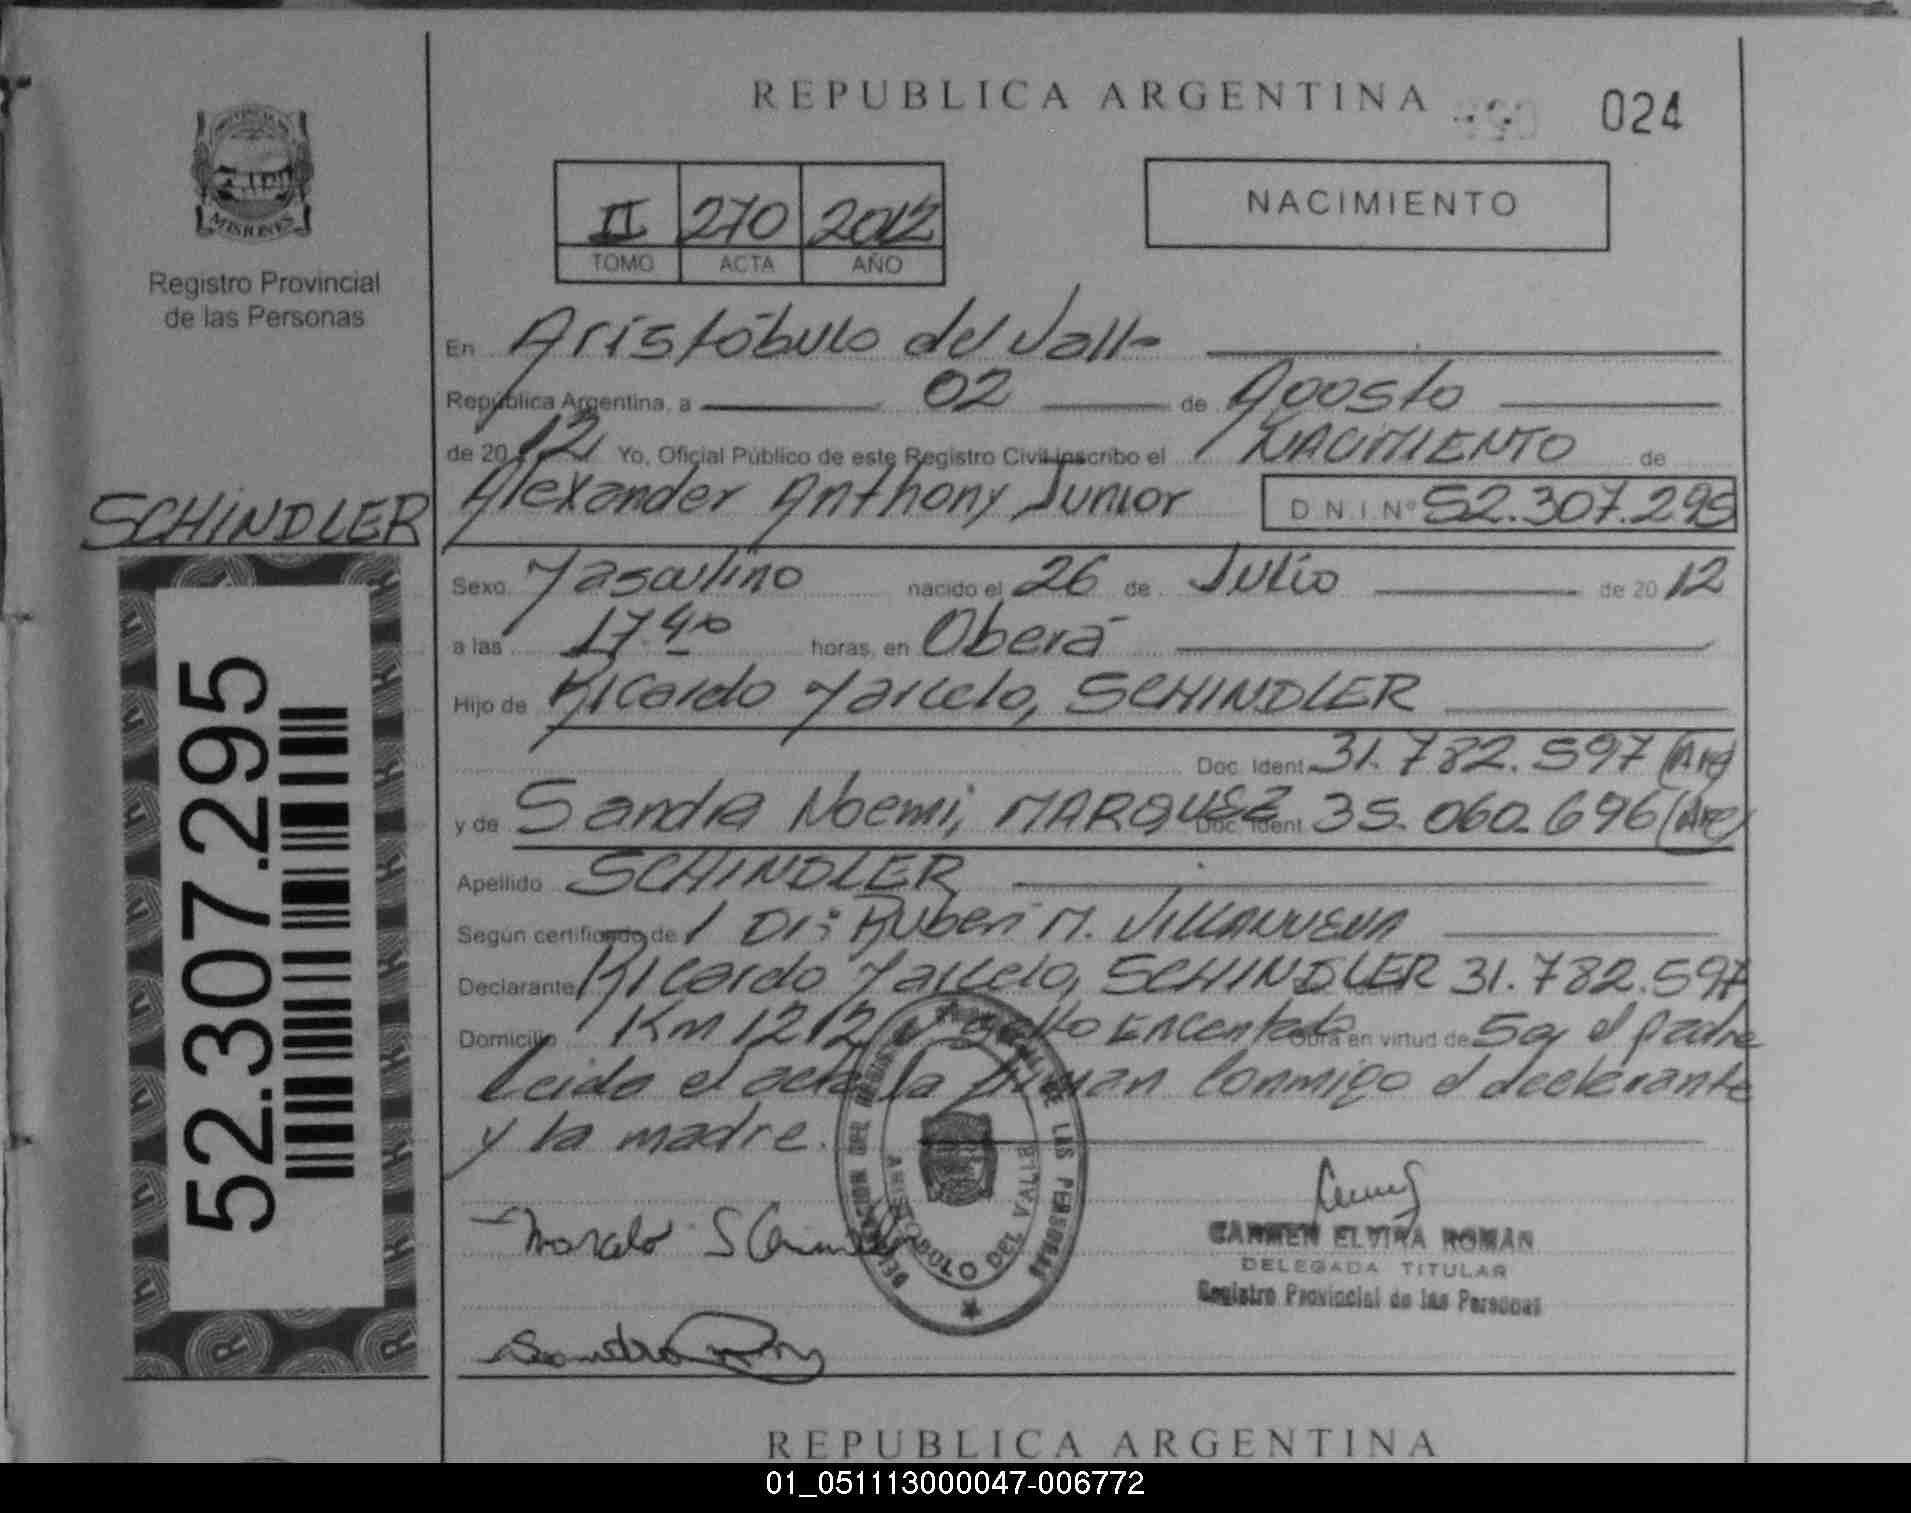 REPUBLICA ARGENTINA
024
PROVINCIA DE
MISIONES
Registro Provincial
de las Personas
II 270 2012
TOMO ACTA AÑO
NACIMIENTO
En Aristóbulo del Valle
República Argentina, a 02 de Agosto
de 2012 Yo, Oficial Público de este Registro Civil inscribo el NACIMIENTO de
SCHINDLER
Alexander Anthony Junior D.N.I. Nº 52.307.295
Sexo Masculino nacido el 26 de Julio de 2012
a las 17.40 horas, en Oberá
Hijo de Ricardo Marcelo, SCHINDLER
Doc. Ident. 31.782.597 (Arg)
y de Sandra Noemi, MARQUEZ Doc. Ident. 35.060.696 (Arg)
Apellido SCHINDLER
Según certificado de / Dr: Ruben M. VILLANUEVA
Declarante Ricardo Marcelo, SCHINDLER 31.782.597
Domicilio Km 1212 Salto Encantado Obra en virtud de Ser el padre
Leida el acta la firman conmigo el declarante
y la madre.
52.307.295
DE LAS PERSONAS
ARISTOBULO DEL VALLE
Marcelo
Sandra
CARMEN ELVIRA ROMAN
DELEGADA TITULAR
Registro Provincial de las Personas
REPUBLICA ARGENTINA
01_051113000047-006772